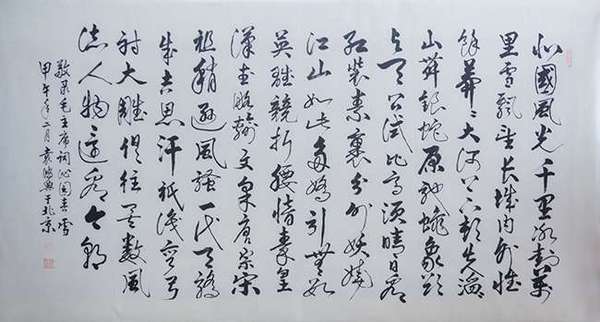 北國風光千里冰封萬
里雪飄望長城內外惟
餘莽々大河上下頓失滔々
山舞銀蛇原馳蠟象欲
与天公試比高須晴日看
紅裝素裹分外妖嬈
江山如此多嬌引無數
英雄競折腰惜秦皇
漢武略輸文采唐宗宋
祖稍遜風騷一代天驕
成吉思汗祇識彎弓
射大雕俱往矣數風
流人物還看今朝
敬录毛主席詞沁園春雪
甲午年二月袁于北京